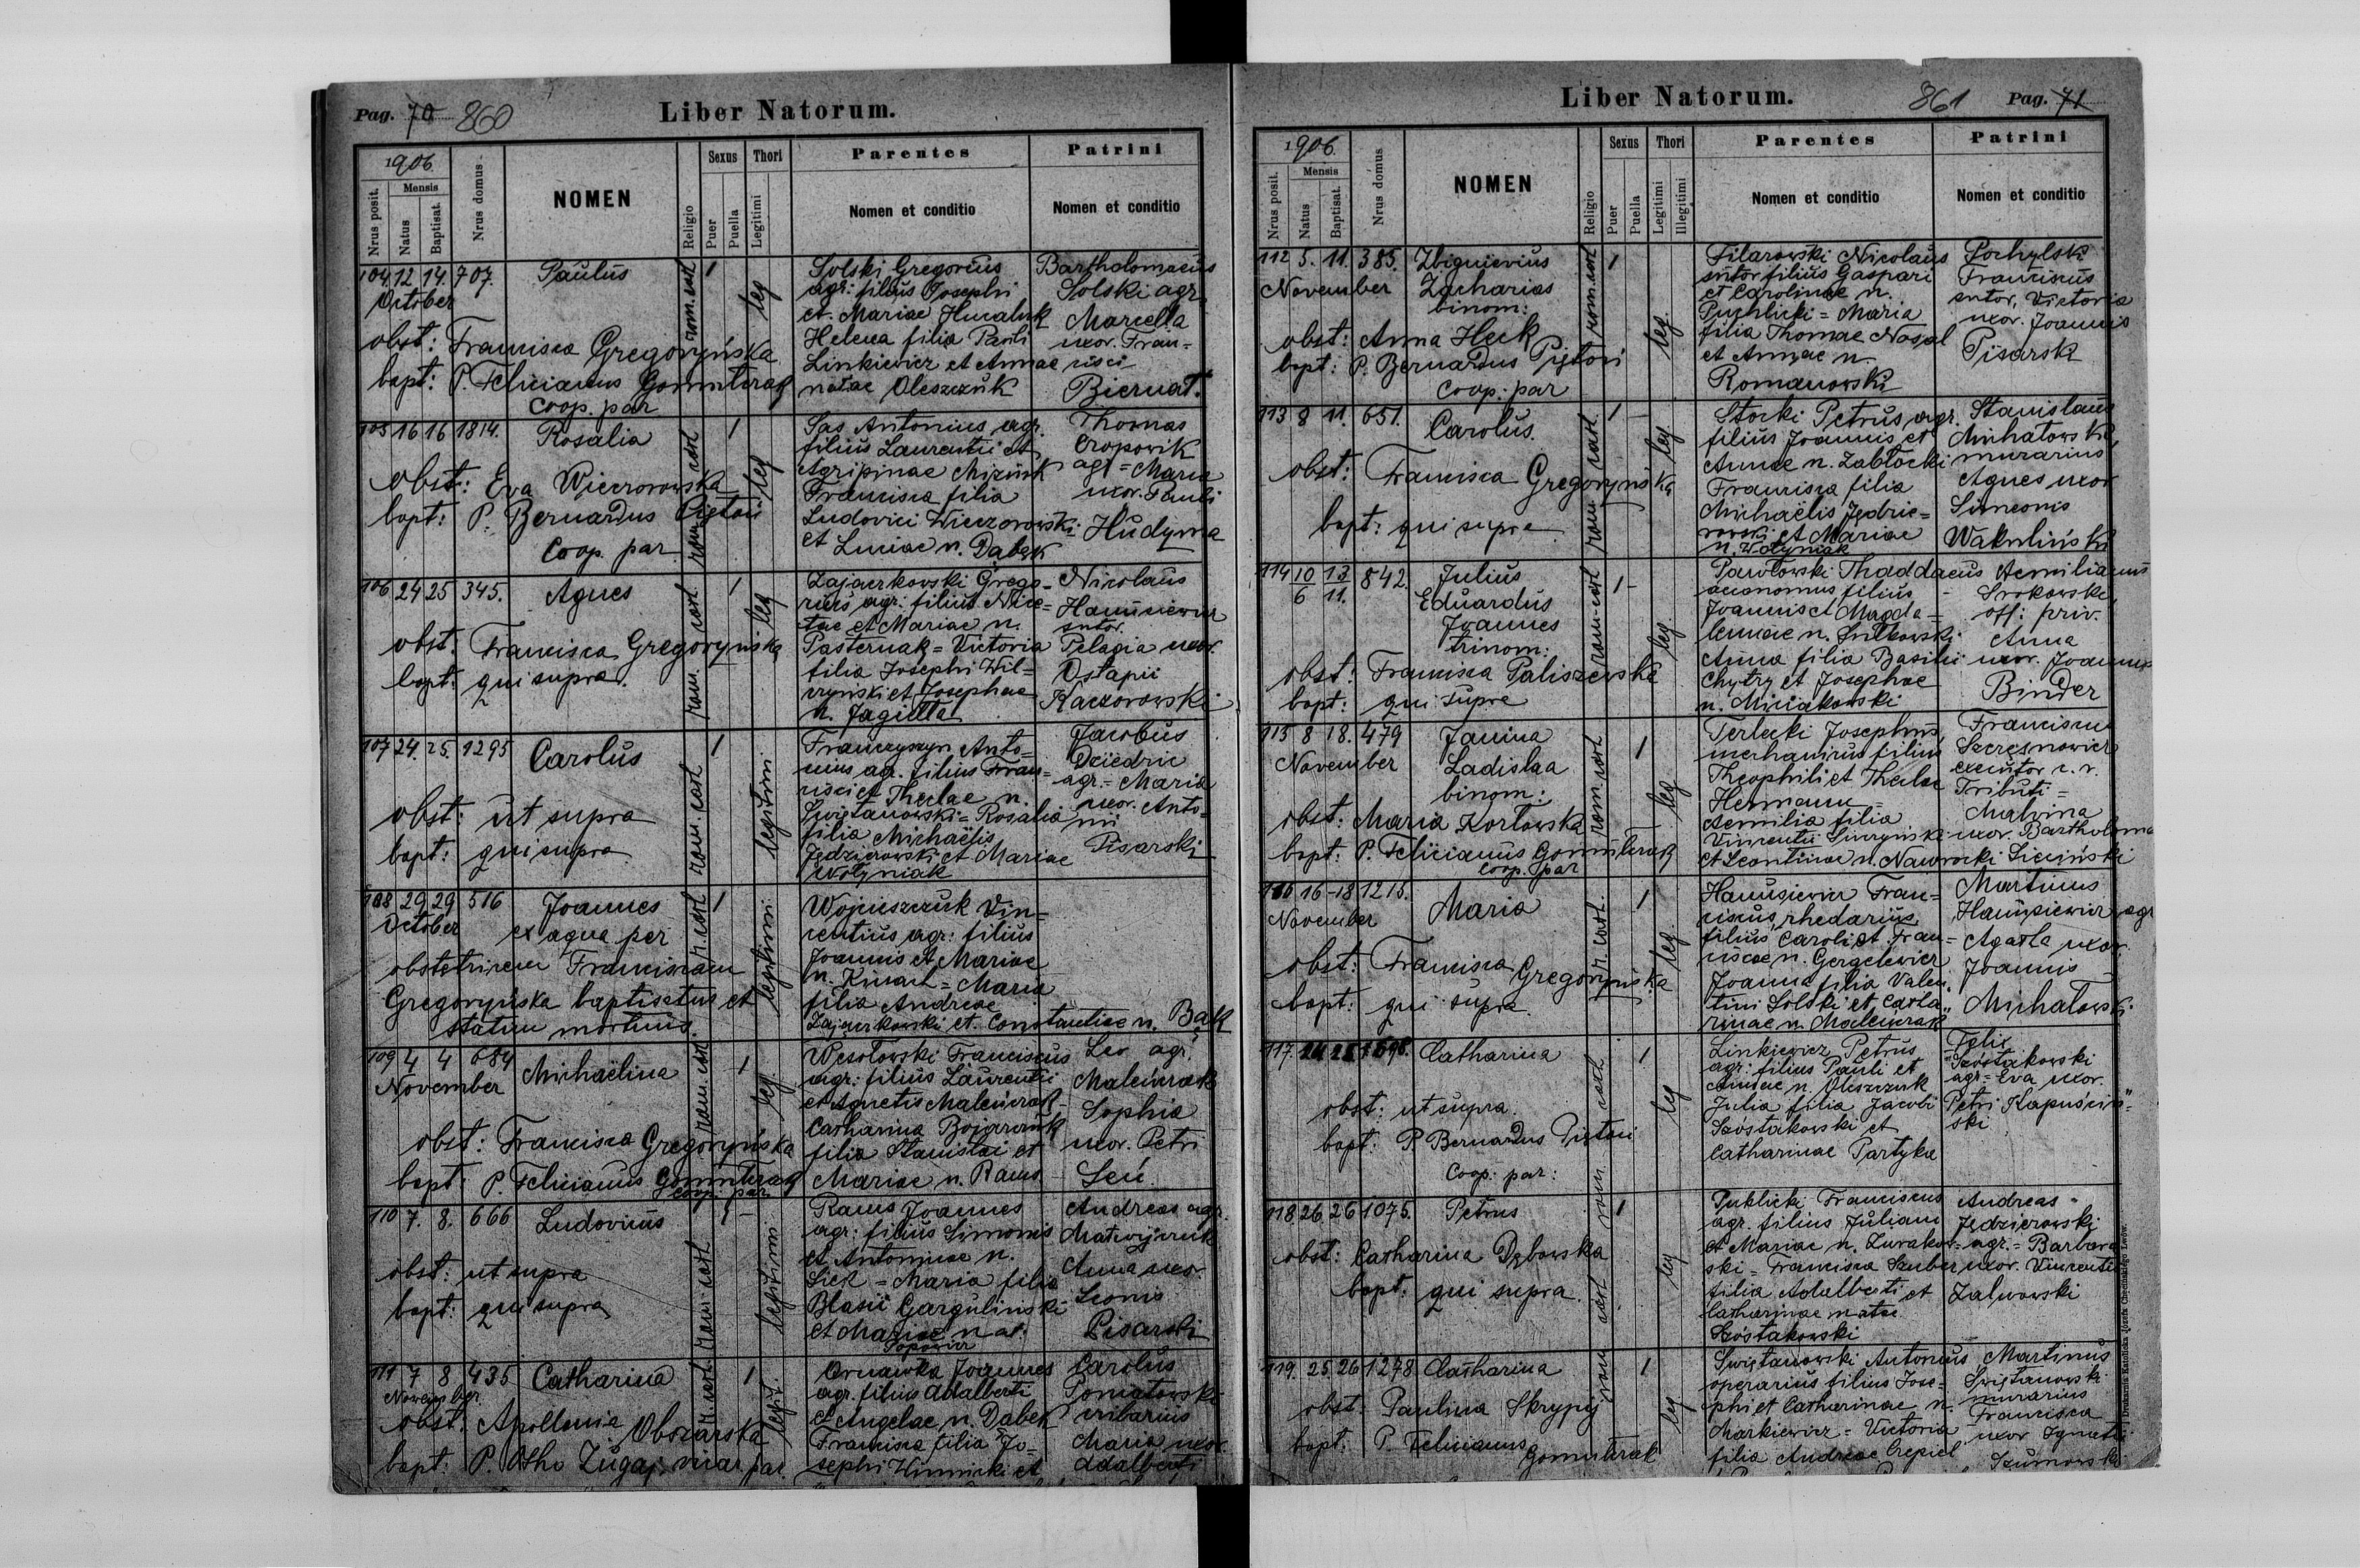 Pag. 70 860
Liber Natorum.
1906.
Nrus posit.
Mensis
Natus
Baptisat.
Nrus domus
NOMEN
Religio
Sexus
Puer
Puella
Thori
Legitimi
Parentes
Nomen et conditio
Patrini
Nomen et conditio
104 12 14. 707. Paulus
October
rom. cat
1
leg
obst: Francisca Gregoryńska
bapt: P. Felicianus
coop. par
Solski Gregorius
agr: filius Josephi
et Mariae
Helena filia Pauli
Linkiewicz et Annae
natae Oleszczuk
Bartholomaeus
Solski agr.
Marcella
uxor. Fran=
cisci
Biernat.
105 16 16 1814. Rosalia
rom. cat
1
leg
obst: Eva Wieczorowska
bapt: P. Bernardus
Coop. par
Sas Antonius agr.
filius Laurentii et
Agripinae
Francisca filia
Ludovici Wieczorowski
et Luciae n. Dąbek
Thomas
agr = Maria
uxor. Pauli
Hudyma
106 24 25 345. Agnes
rom. cat.
1
leg
obst. Francisca Gregoryńska
bapt: qui supra.
Zajączkowski Grego-
rius agr: filius Nice=
tae et Mariae n.
Pasternak = Victoria
filia Josephi Wil=
czyński et Josephae
n. Jagiełła
Nicolaus
Hanusiewicz
sutor.
Pelagia uxor.
Ostapii
Kaczorowski
107 24. 25. 1295 Carolus
rom. cat
1
legitimi
obst: ut supra
bapt: qui supra
Franczyszyn Anto=
nius agr. filius Fran=
cisci et Theclae n.
Świętanowski = Rosalia
filia Michaëlis
Jędzierowski et Mariae
Wołyniak
Jacobus
Dziedzic
agr. = Maria
uxor. Anto=
nii
Pisarski
108 29 29 516 Joannes
October ex aqua per
r. cat
1
legitimi
obstetricem Franciscam
Gregoryńska baptisatus et
statim mortuus.
Wojcieszczuk Vin=
centius agr: filius
Joannis et Mariae
n. = Maria
filia Andreae
Zajączkowski et Constantiae n. Bąk
109 4 4 684 Michaëlina
November
rom. cat
1
leg.
obst: Francisca Gregoryńska
bapt: P. Felicianus
coop. par
Wesołowski Franciscus
agr: filius Laurentii
et Agnetis
Catharina Bojarczuk
filia Stanislai et
Mariae n. Raus
Leo agr.
Sophia
uxor. Petri
110 7. 8. 666 Ludovicus
rom. cat
1
legitimi
obst: ut supra
bapt: qui supra
Raus Joannes
agr: filius Simonis
et Antoninae n.
= Maria filia
Blasii Gargulinski
et Mariae nat.
Popowicz
Andreas agr.
Matwijczuk
Anna uxor.
Leonis
Pisarski
111 7 8 435 Catharina
November
r. cat
1
legit.
obst: Apollonia Obszarska
bapt: P. Otho Żugaj vicar par.
Joannes
agr. filius Adalberti
et Angelae n. Dąbek
Francisca filia Jo=
sephi et
Carolus
Poniatowski
Maria uxor.
Adalberti
Liber Natorum.
861 Pag. 71
1906.
Nrus posit.
Mensis
Natus
Baptisat.
Nrus domus
NOMEN
Religio
Sexus
Puer
Puella
Thori
Legitimi
Illegitimi
Parentes
Nomen et conditio
Patrini
Nomen et conditio
112 5. 11. 385. Zbignievius
November Zacharias
binom:
rom. cat
1
leg.
obst: Anna Heck
bapt: P. Bernardus
Coop. par
Filarowski Nicolaus
sutor filius Gaspari
et Carolinae n.
Puchlicki = Maria
filia Thomae Nosal
et Annae n.
Romanowski
Pochylski
Franciscus
sutor, Victoria
uxor. Joannis
Pisarski
113 8 11. 651. Carolus.
rom. cat.
1
leg.
obst: Francisca Gregoryńska
bapt: qui supra
Storki Petrus agr.
filius Joannis et
Annae n. Zabłocki
Francisca filia
Michaëlis Jędzie=
rowski et Mariae
n. Wołyniak
Stanislaus
Michałowski
murarius
Agnes uxor
Simeonis
Wakuliński
114 10/6 13/11. 842. Julius
Eduardus
Joannes
trinom:
rom-cat
1
leg.
obst: Francisca Paliszewska
bapt: qui supra
Pawłowski Thaddaeus
oeconomus filius
Joannis et Magda=
lenae n. Sułkowski
Anna filia Basilii
Chytry et Josephae
n. Miciakowski
Aemilianus
Srokowski
off: priv.
Anna
uxor. Joannis
Binder
115 8 18. 479 Janina
November Ladislaa
binom:
rom. cat
1
leg
obst: Maria Kozłowska
bapt: P. Felicianus
coop. par
Terlecki Josephus,
mechanicus filius
Theophili et Theclae
Hermann =
Aemilia filia
Vincentii
et Leontinae n. Nawrocki
Franciscus
executor c. r.
Tributi =
Malvina
uxor. Bartholomaei
Siciński
116 16-18 1215. Maria
November
r. cat.
1
leg
obst: Francisca Gregoryńska
bapt: qui supra.
Hanusiewicz Fran=
ciscus, rhedarius
filius Caroli et Fran=
ciscae n. Gergelewicz
Joanna filia Valen
tini Solski et Catha
rinae n.
Martinus
Hanusiewicz agr
Agatha uxor.
Joannis
Michałowski
117. 24 25 1698. Catharina
rom cat
1
leg
obst: ut supra.
bapt: P. Bernardus
Coop. par:
Linkiewicz Petrus
agr: filius Pauli et
Annae n. Oleszczuk
Julia filia Jacobi
Szostakowski et
Catharinae Partyka
Felix
Szostakowski
agr = Eva uxor.
Petri Kapuściń"=
ski
118 26 26 1075. Petrus
rom cat
1
leg
obst: Catharina Dębowska
bapt: qui supra.
Publicki Franciscus
agr. filius Juliani
et Mariae n. Żurakow=
ski = Francisca Szuber
filia Adalberti et
Catharinae natae
Szóstakowski
Andreas
Jędzierowski
agr. = Barbara
uxor. Vincentii
Zalwowski
119. 25 26 1278 Catharina
rom
1
leg
obst: Paulina Skrypij
bapt: P. Felicianus
Świętanowski Antonius
operarius filius Jose=
phi et Catharinae n.
Markiewicz = Victoria
filia Andreae Crepiel
Martinus
Świętanowski
murarius
Francisca
uxor Ignatii
Szumowski
Drukarnia Katolicka Józefa Chęcińskiego Lwów.